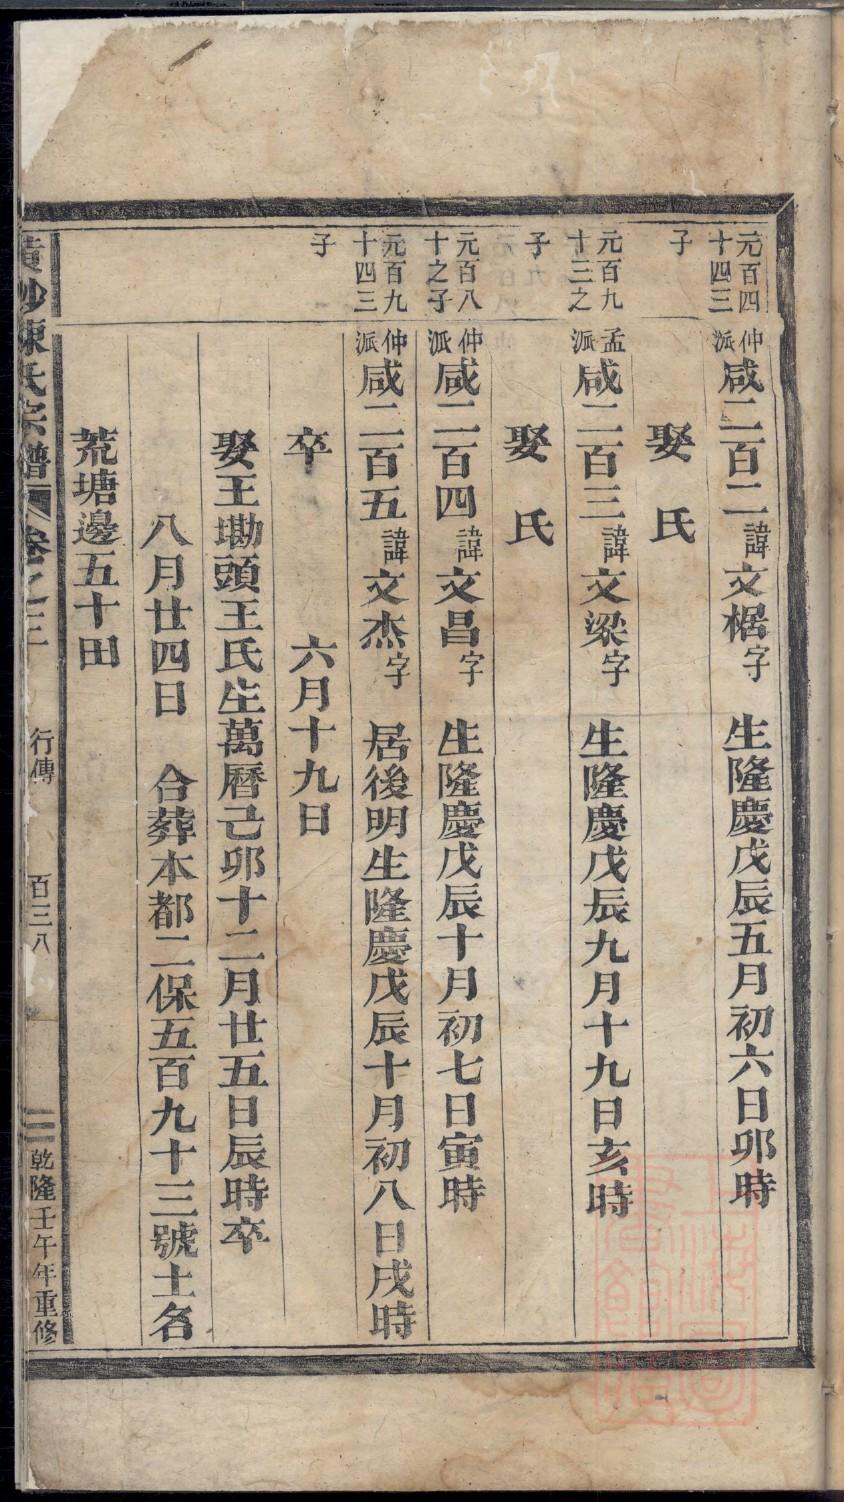 元百四
十四三
子
仲派咸二百二諱文椐字 生隆慶戊辰五月初六日卯時
娶 氏
元百九
十三之
子
孟派咸二百三諱文梁字 生隆慶戊辰九月十九日亥時
娶 氏
元百八
十之子
仲派咸二百四諱文昌字 生隆慶戊辰十月初七日寅時
元百九
十四三
子
仲派咸二百五諱文杰字 居後明生隆慶戊辰十月初八日戌時
卒 六月十九日
娶王墈頭王氏生萬曆己卯十二月廿五日辰時卒
八月廿四日 合葬本都二保五百九十三號土名
荒塘邊五十田
陳氏宗譜 卷之三 行傳 百三八 乾隆壬午年重修